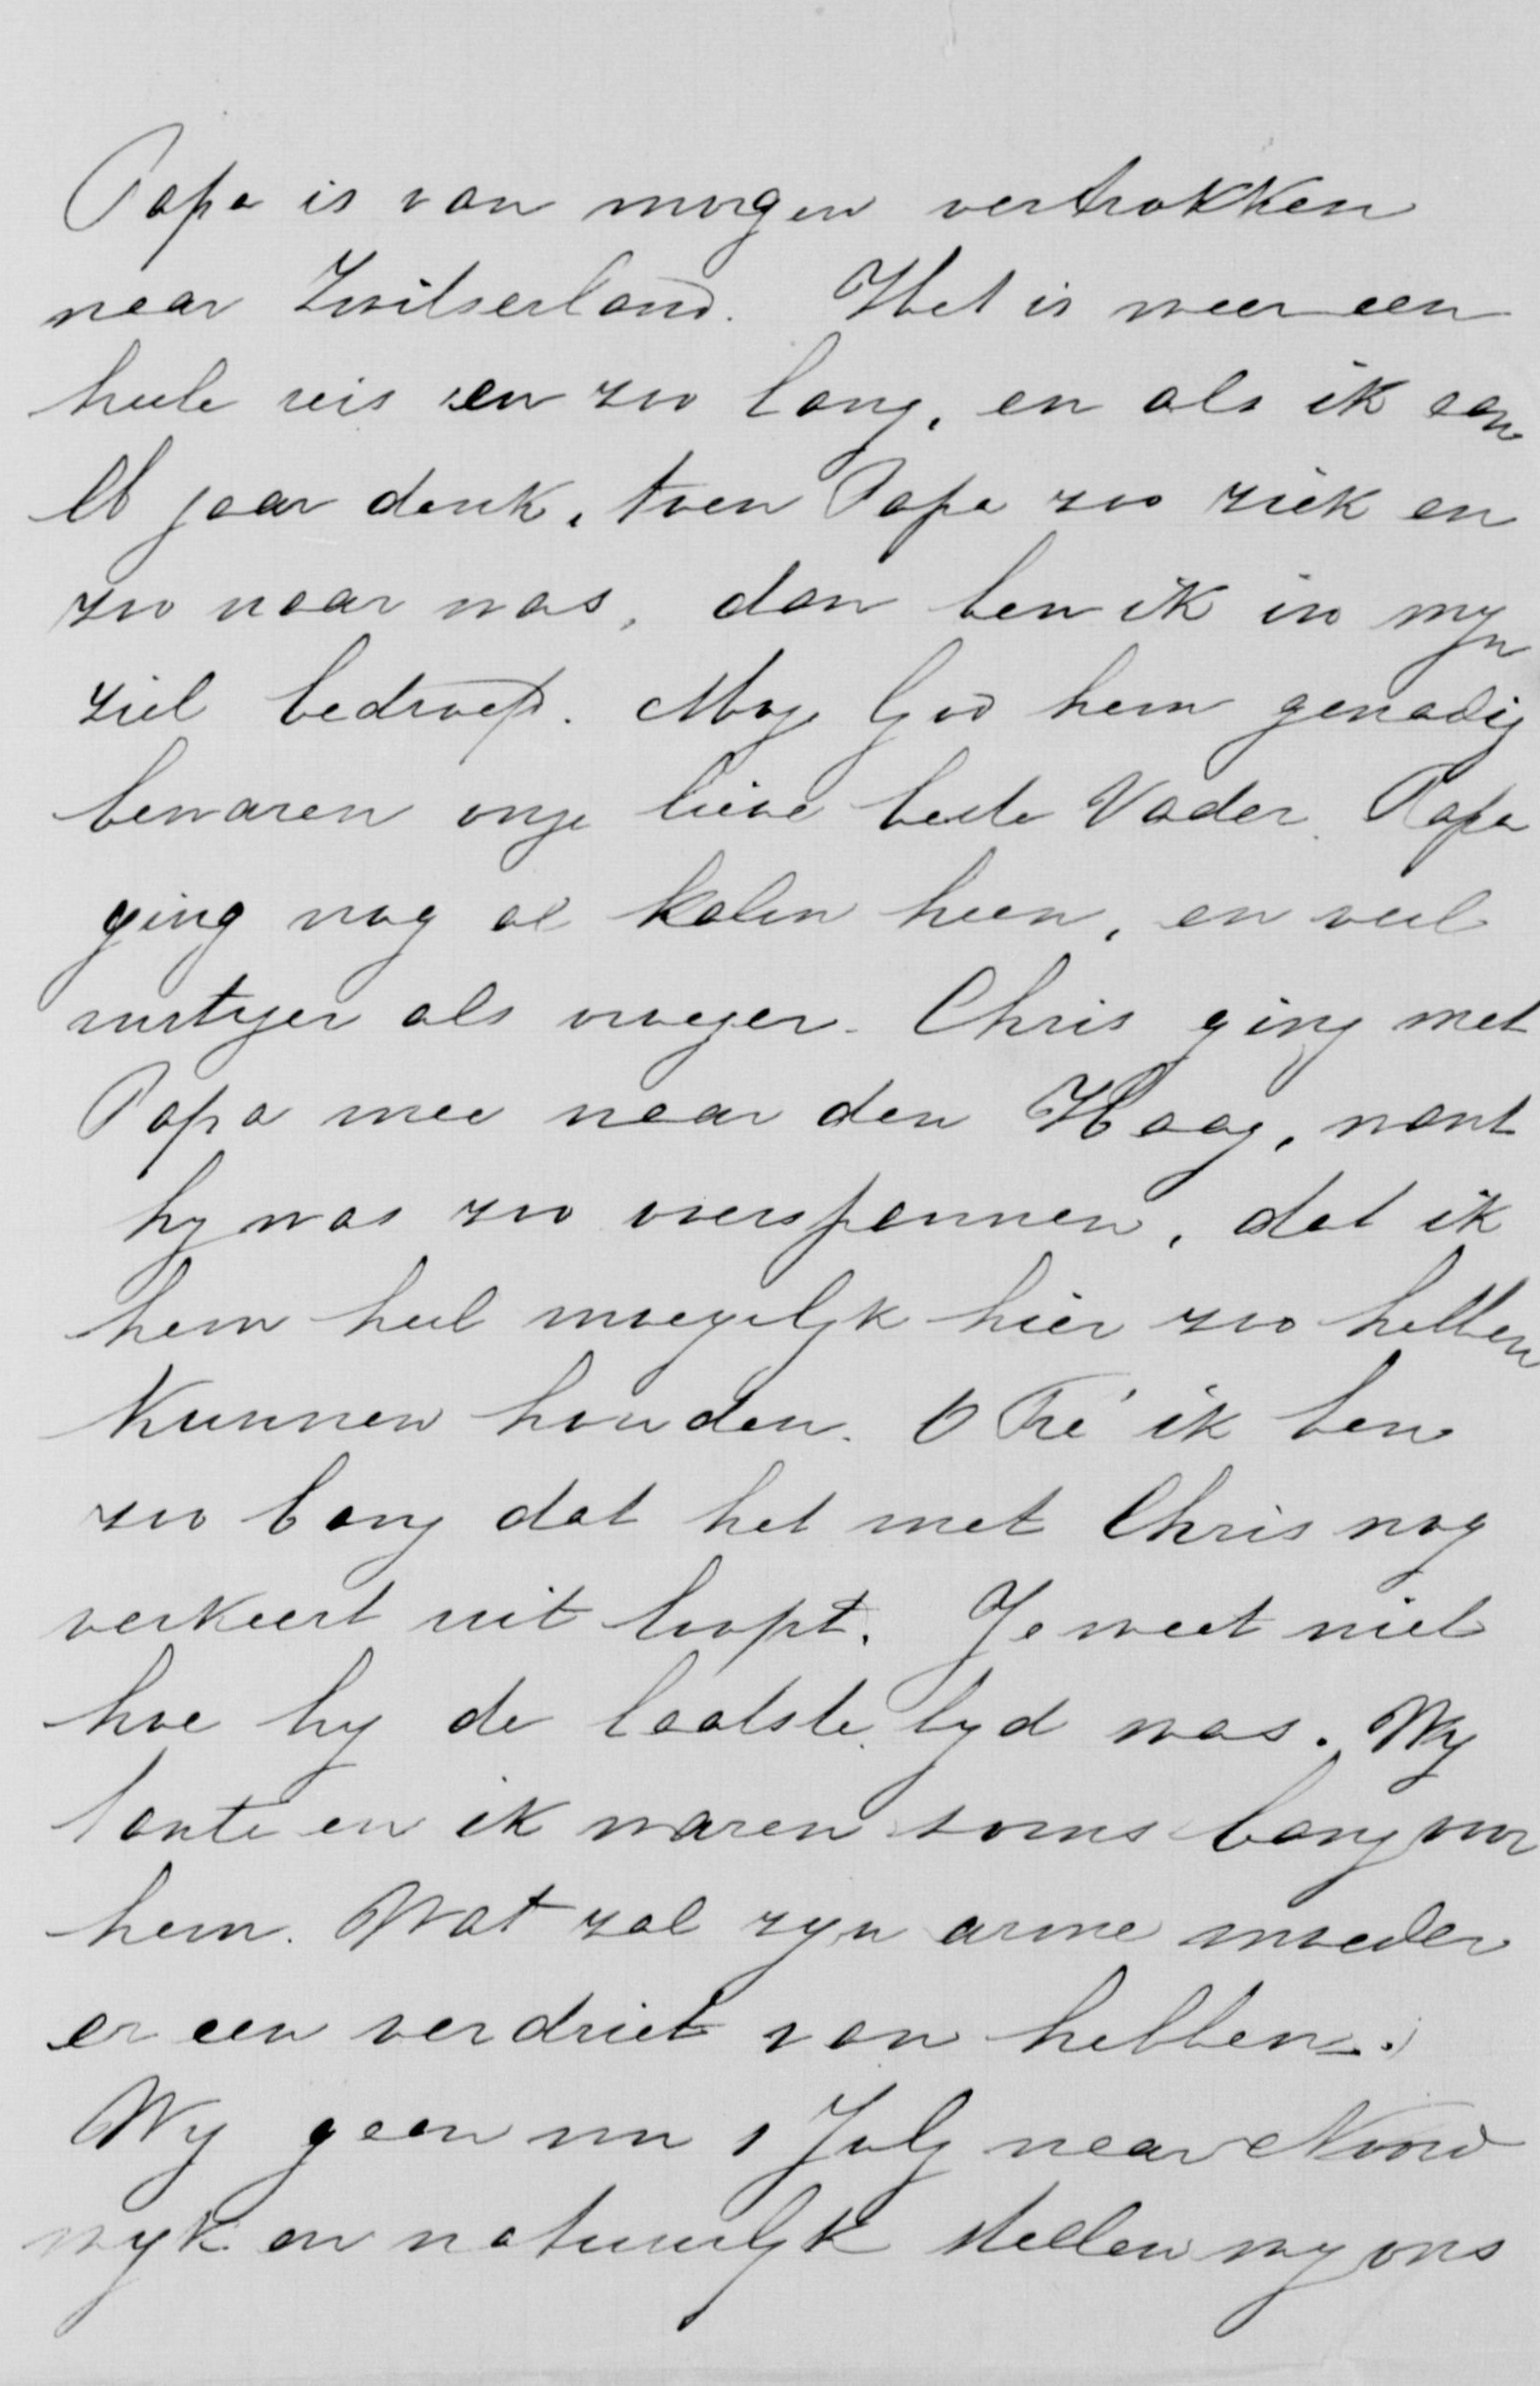 Papa is van morgen vertrokken
naar Zwitserland. Het is weer een
heele reis en zoo lang, en als ik aan
jaar denk, toen Papa zoo ziek en
zoo naar was, dan ben ik in myn
ziel bedroefd. Moge God hem genadig
bewaren onze lieve beste Vader. Papa
ging nog al kalm heen, en veel
rustiger als vroeger. Chris ging met
Papa mee naar den Haag, want
hy was zoo overspannen, dat ik
hem heel moeyelyk hier zoo hebben
kunnen houden. O Fré ik ben
zoo bang dat het met Chris nog
verkeert uit loopt. Je weet niet
hoe hy de laatste tyd was. Wy
tante en ik waren soms bang voor
hem. Wat zal zyn arme moeder
er een verdriet van hebben.
Wy gaan nu 1 July naar Noord
wyk en natuurlyk stellen wy ons